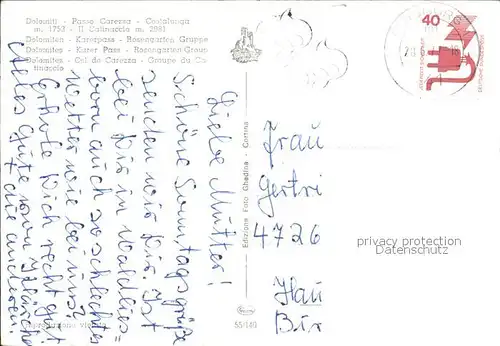 Dolomiti - Passo Carezza - Costalunga
m. 1753 - Il Catinaccio m. 2981
Dolomiten - Karerpass - Rosengarten Gruppe
Dolomites - Karer Pass - Rosengarten Group
Dolomites - Col de Carezza - Groupe du Catinaccio
Liebe Mutter!
Schöne Sonntagsgrüße
senden wir Dir. Ist
bei Dir in Waldlies=
born auch so schlechtes
wetter wie bei uns?
Erhole Dich recht gut
Alles Gute von
+ die anderen.
Edizione Foto Ghedina - Cortina
55/140
40
Frau
Gertri
4726
Hau
Bir
privacy protection
Datenschutz